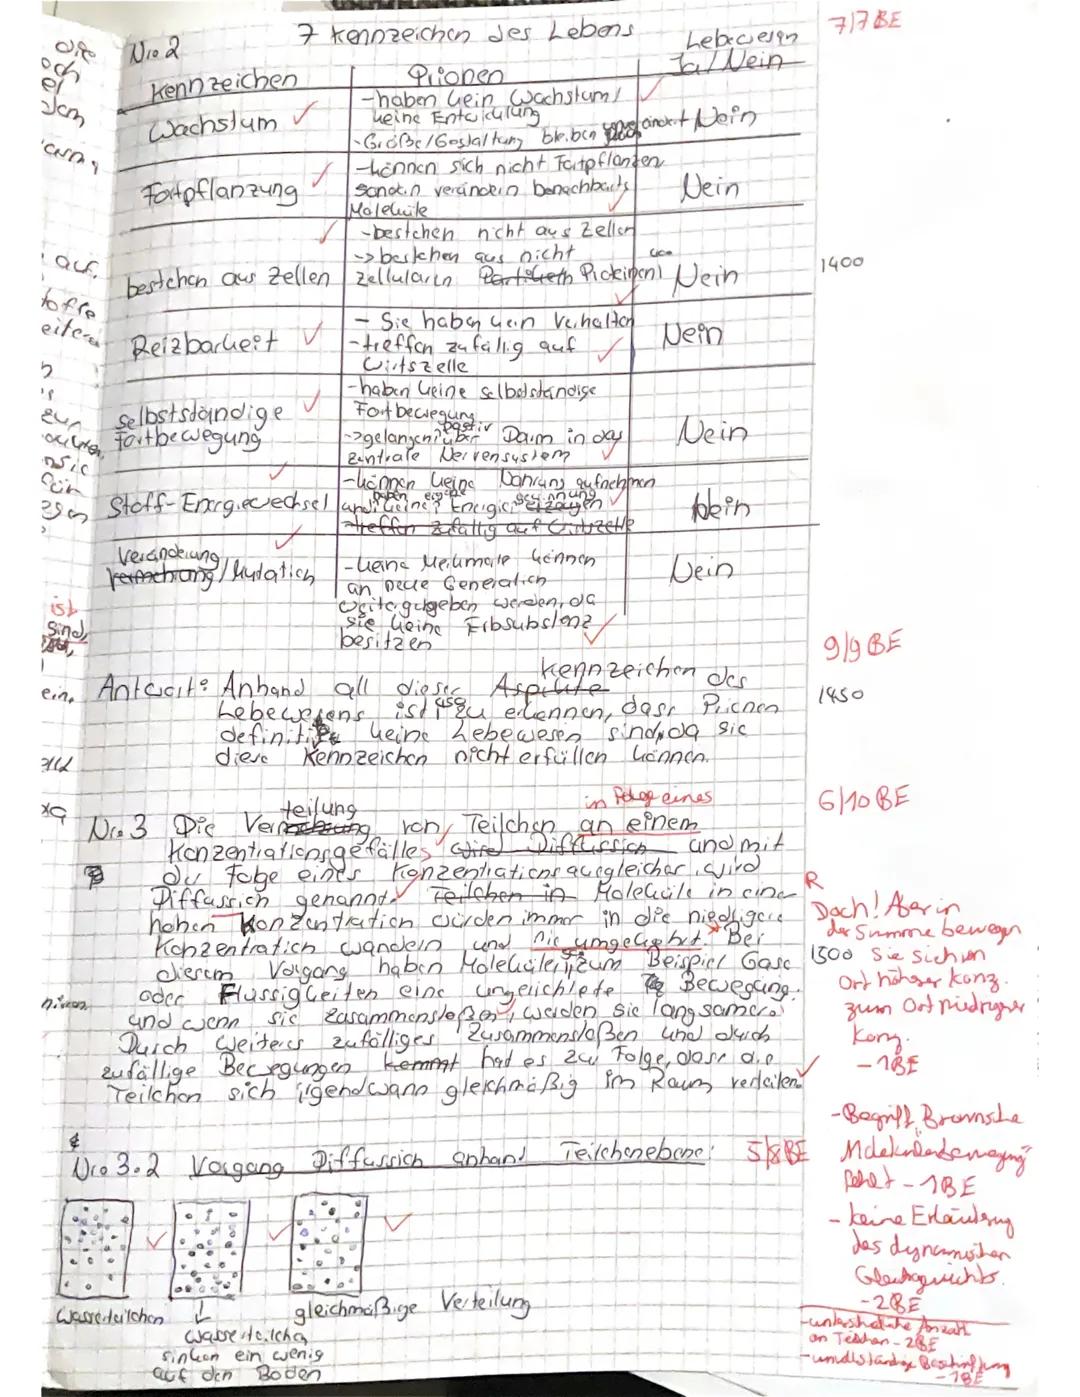 7/7 BE
Nr. 2 7 Kennzeichen des Lebens
Lebewesen
Kennzeichen Prionen Ja/Nein
Wachstum
-haben kein Wachstum/
keine Entwicklung
-Größe/Gestaltung bleiben unverändert
Nein
Fortpflanzung
-können sich nicht Fortpflanzen
sondern verändern benachbarts
Moleküle
Nein
bestehen aus Zellen
-bestehen nicht aus Zellen
-> bestehen aus nicht
zellulären Partikeln Proteinen
Nein
1400
Reizbarkeit
- Sie haben kein Verhalten
-treffen zufällig auf
Wirtszelle
Nein
selbstständige
Fortbewegung
-haben keine selbstständige
Fortbewegung
->gelangen passiv über Darm in das
zentrale Nervensystem
Nein
Stoff-Energiewechsel
-können keine Nahrung aufnehmen
und haben keine eigene Energiegewinnung erzeugen
-treffen zufällig auf Wirtszelle
Nein
Veränderung
Vermehrung/Mutation
-keine Merkmale können
an neue Generation
weitergegeben werden, da
sie keine Erbsubstanz
besitzen
Nein
9/9 BE
Antwort: Anhand all dieser Aspekte Kennzeichen des
Lebewesens ist also zu erkennen, dass Prionen
definitiv keine Lebewesen sind, da sie
diese Kennzeichen nicht erfüllen können.
1450
6/10 BE
in Folge eines
Nr. 3 Die Verteilung von Teilchen an einem
Konzentrationsgefälles wird Diffussion und mit
der Folge eines Konzentrationsausgleichs, wird
Diffussion genannt. Teilchen in Moleküle in einer
hohen Konzentration würden immer in die niedrigere
Konzentration wandeln und nie umgekehrt. Bei
diesem Vorgang haben Moleküle, zum Beispiel Gase
oder Flüssigkeiten eine ungerichtete Bewegung.
und wenn sie zusammenstoßen, werden sie langsamer.
Durch weiteres zufälliges Zusammenstoßen und durch
zufällige Bewegungen kommt hat es zur Folge, dass die
Teilchen sich irgendwann gleichmäßig im Raum verteilen
R
Doch! Aber in
der Summe bewegen
1500 sie sich von
Ort höherer Konz.
zum Ort niedriger
Konz.
- 1BE
Nr. 3.2 Vorgang Diffussion anhand Teilchenebene: 5/8 BE
-Begriff "Brownsche
Molekularbewegung"
fehlt - 1BE
- keine Erläuterung
des dynamischen
Gleichgewichts.
- 2BE
-unterschiedliche Anzahl
an Teilchen - 2BE
-unvollständige Beschriftung
- 1BE
Wasserteilchen
Wasserteilchen
sinken ein wenig
auf den Boden
gleichmäßige Verteilung